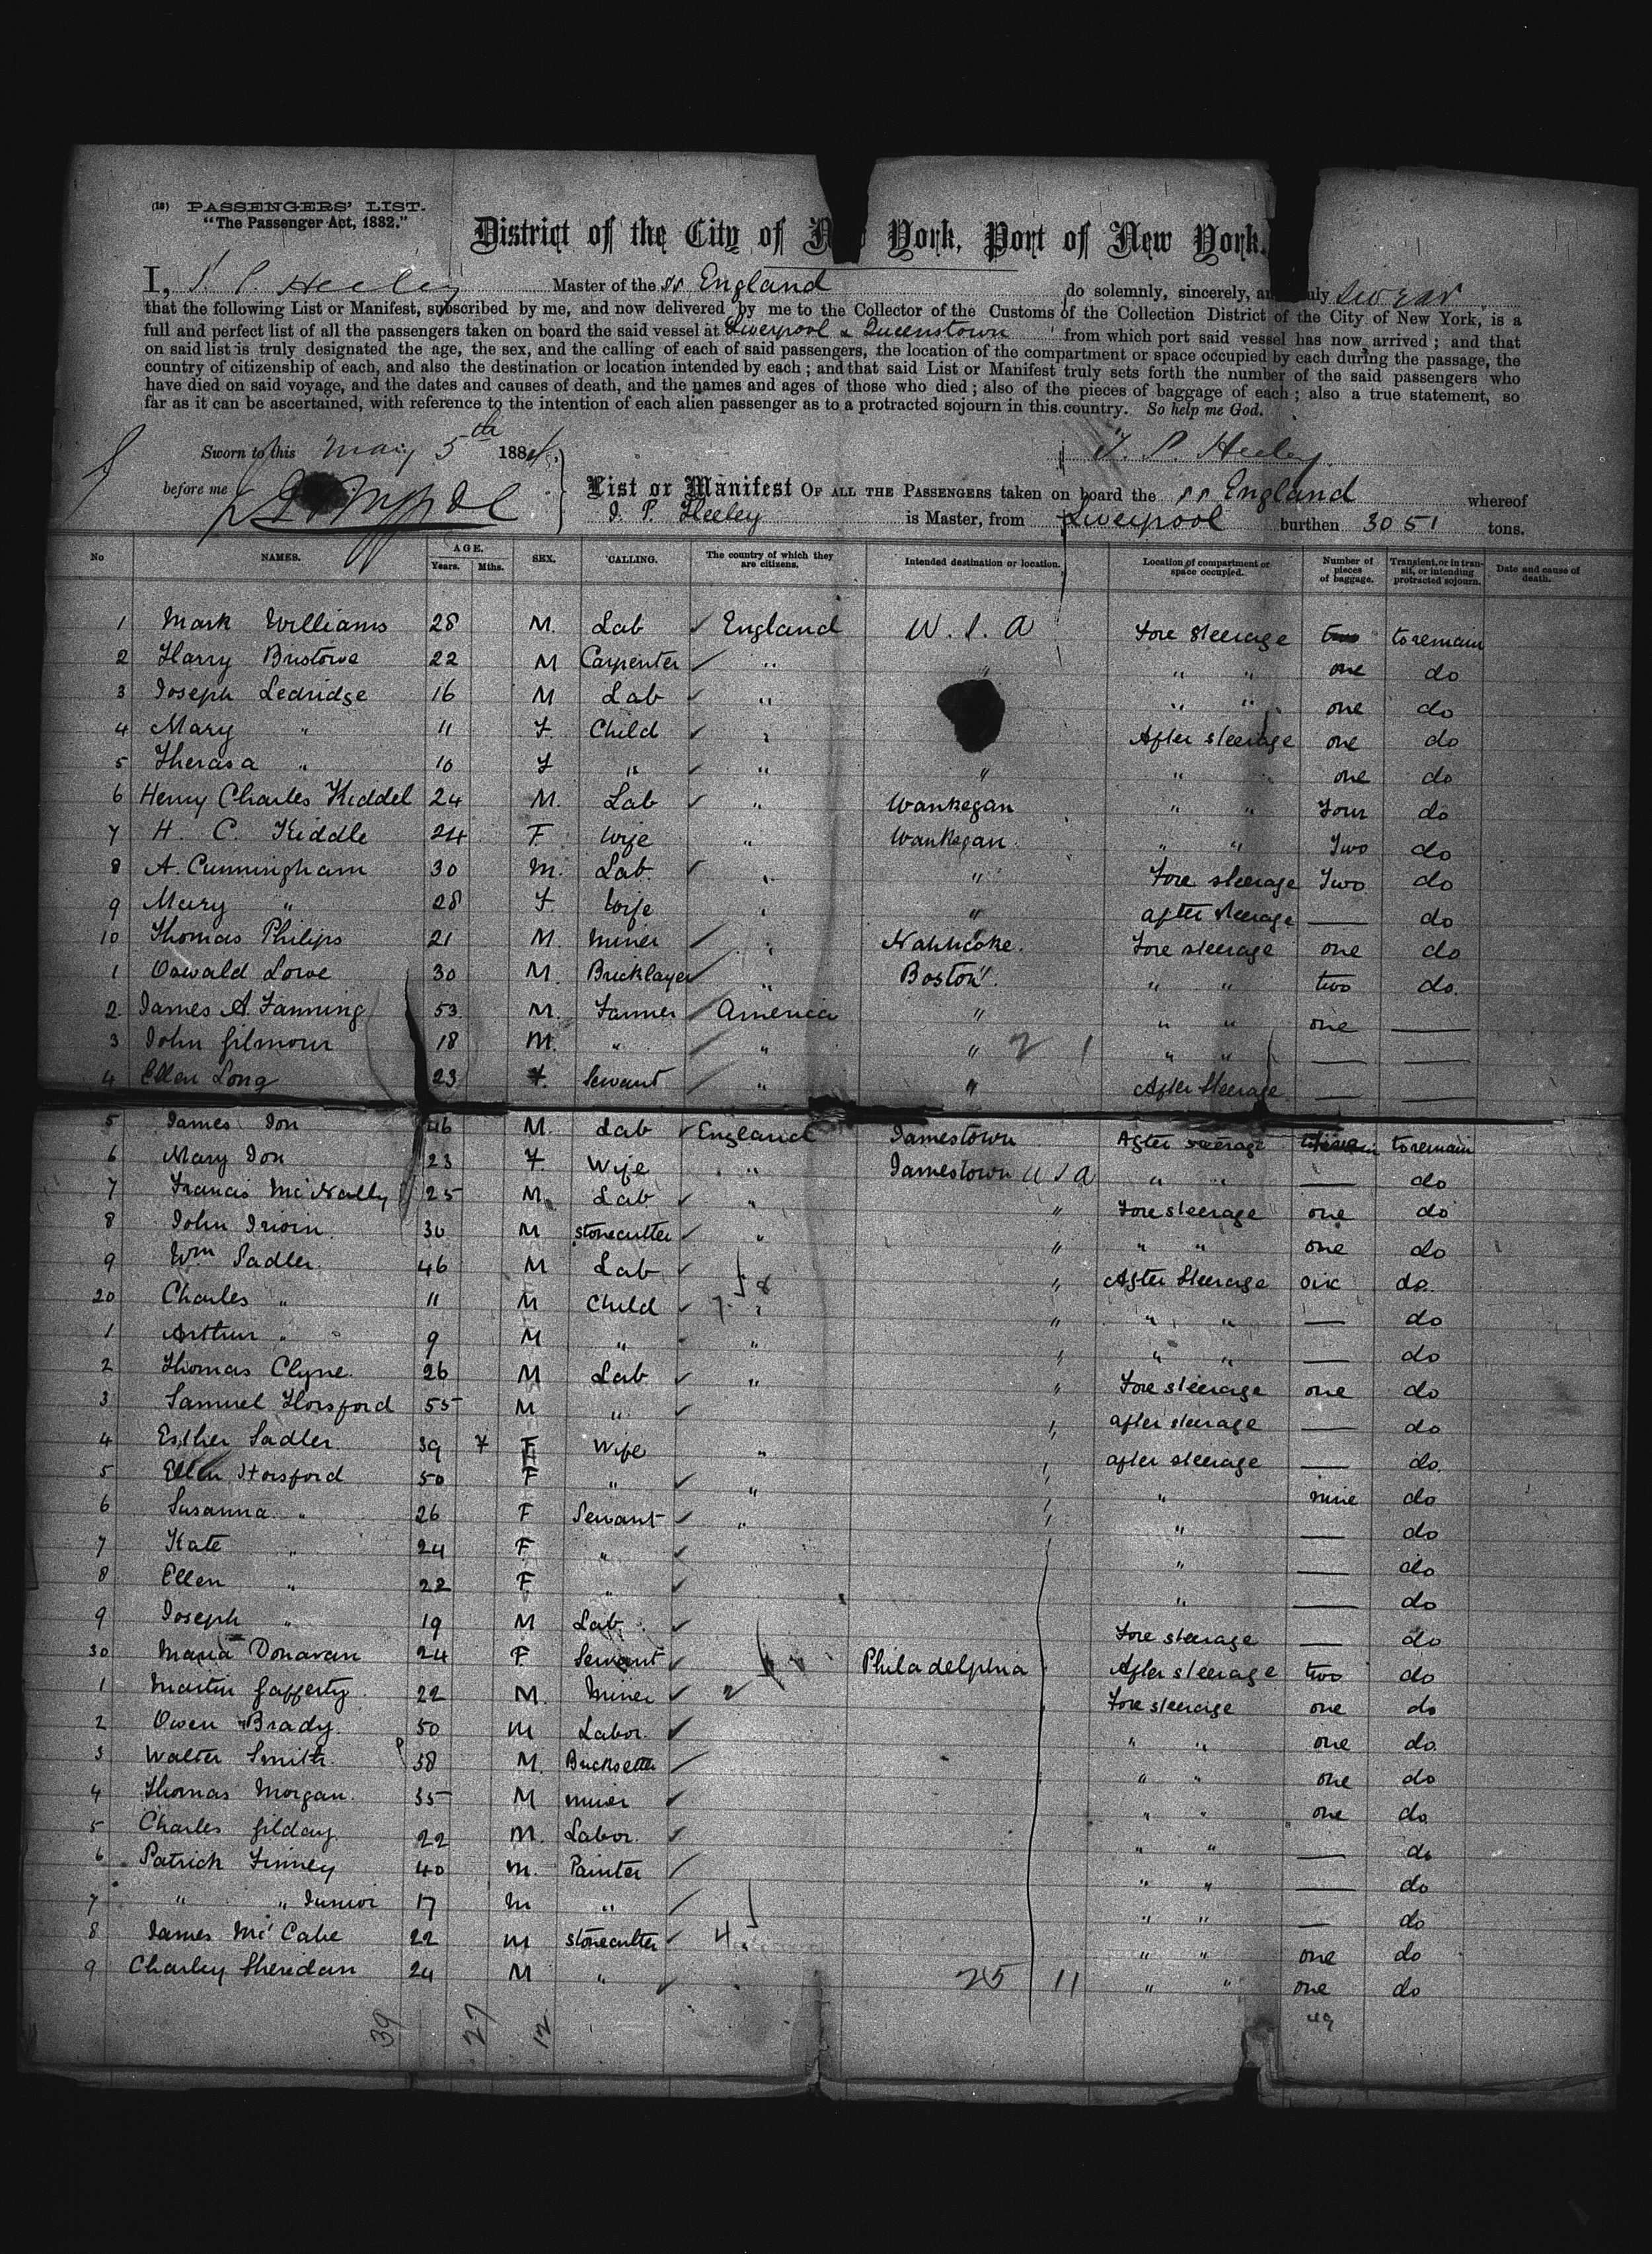 (18) PASSENGERS' LIST.
"The Passenger Act, 1882."
District of the City of New York, Port of New York.
I, Heeley Master of the ss England do solemnly, sincerely, and truly swear
that the following List or Manifest, subscribed by me, and now delivered by me to the Collector of the Customs of the Collection District of the City of New York, is a
full and perfect list of all the passengers taken on board the said vessel at Liverpool & Queenstown from which port said vessel has now arrived; and that
on said list is truly designated the age, the sex, and the calling of each of said passengers, the location of the compartment or space occupied by each during the passage, the
country of citizenship of each, and also the destination or location intended by each; and that said List or Manifest truly sets forth the number of the said passengers who
have died on said voyage, and the dates and causes of death, and the names and ages of those who died; also of the pieces of baggage of each; also a true statement, so
far as it can be ascertained, with reference to the intention of each alien passenger as to a protracted sojourn in this country. So help me God.
Sworn to this May 5th 1884. P. Heeley
before me
List or Manifest OF ALL THE PASSENGERS taken on board the ss England whereof
P. Heeley is Master, from Liverpool burthen 3051 tons.
No NAMES. AGE. Years. Mths. SEX. CALLING. The country of which they are citizens. Intended destination or location. Location of compartment or space occupied. Number of pieces of baggage. Transient, or in transit, or intending protracted sojourn. Date and cause of death.
1 Mark Williams 28 M. Lab England U.S.A Fore Steerage two to remain
2 Harry Bristowe 22 M Carpenter " " " " one do
3 Joseph Ledridge 16 M Lab " " " one do
4 Mary " 11 F Child " After steerage one do
5 Therasa " 10 F " " " " one do
6 Henry Charles Kiddel 24 M. Lab " Waukegan " " Four do
7 H. C. Kiddle 24 F. Wife " Waukegan " " Two do
8 A. Cunningham 30 M. Lab. " " Fore steerage Two do
9 Mary " 28 F. Wife " " after steerage — do
10 Thomas Philips 21 M. Miner " Fore steerage one do
1 Oswald Lowe 30 M. Bricklayer " Boston " " two do.
2 James A. Fanning 53. M. Farmer America " " " one —
3 John Gilmour 18 M. " " " 2 1 " " — —
4 Ellen Long 23 F. Servant " " After Steerage — —
5 James Ion 46 M. Lab England Jamestown After steerage to remain
6 Mary Ion 23 F. Wife " Jamestown U S A " " — do
7 Francis McNally 25 M. Lab " " Fore steerage one do
8 John Irwin 30 M stonecutter " " " " one do
9 Wm Sadler 46 M Lab " After Steerage do.
20 Charles " 11 M Child " " " " — do
1 Arthur " 9 M " " " " " — do
2 Thomas Clyne 26 M Lab " " Fore steerage one do
3 Samuel Horsford 55 M " " after steerage — do
4 Esther Sadler 39 F Wife " " after steerage — do
5 Ellen Horsford 50 F " " " " nine do
6 Susanna " 26 F Servant " " " — do
7 Kate " 24 F " " — do
8 Ellen " 22 F " " — do
9 Joseph " 19 M Lab Fore steerage — do
30 Maria Donavan 24 F Servant Philadelphia After steerage two do
1 Martin Gafferty 22 M. Miner 2 Fore steerage one do
2 Owen Brady 50 M Labor. " " one do
3 Walter Smith 38 M. " " one do
4 Thomas Morgan 35 M miner " " one do
5 Charles Gilday 22 M. Labor. " " — do
6 Patrick Finney 40 M. Painter " " — do
7 " " Junior 17 M " " " — do
8 James McCabe 22 M stonecutter 4 " " one do
9 Charley Sheridan 24 M " 25 11 " " one do
39 27 12 49